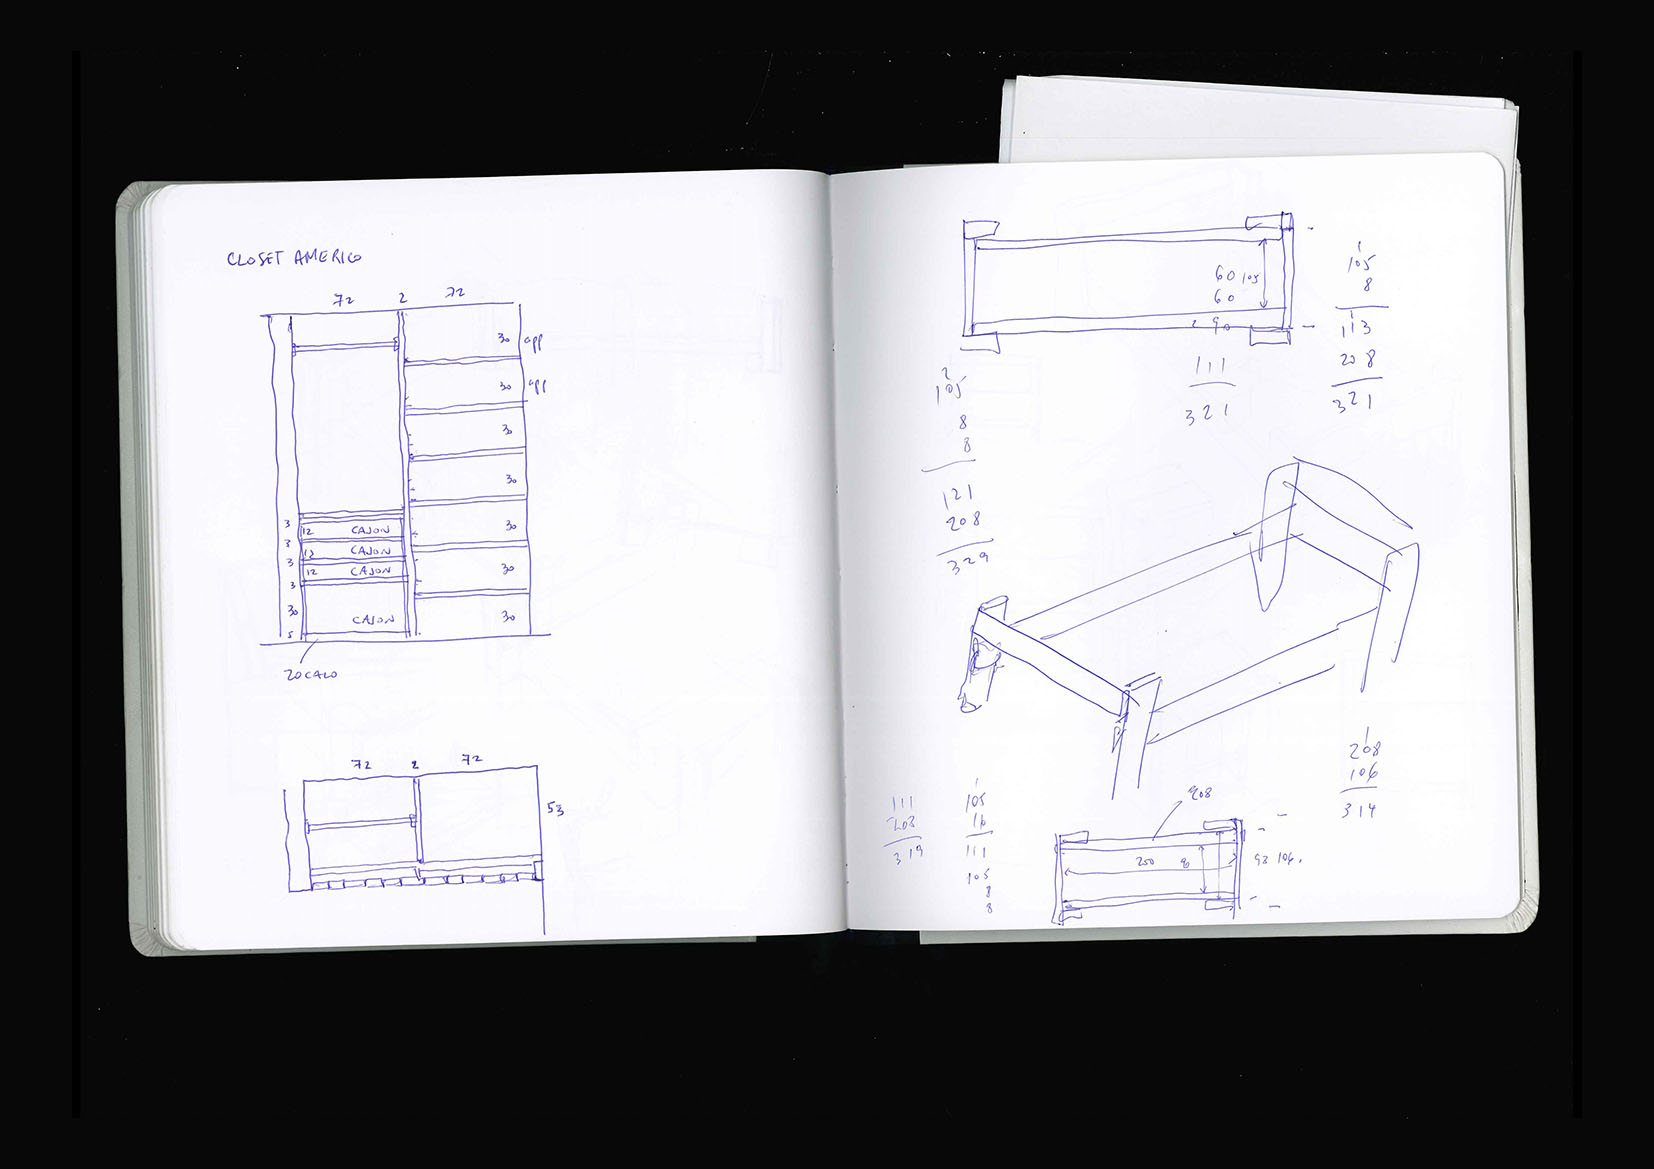 CLOSET AMERICO
72 2 72
30 app
30 app
30
30
30
30
30
3
12 CAJON
3
12 CAJON
3
12 CAJON
3
30
CAJON
5
ZOCALO
72 2 72
53
60 105
60
2 90
111
321
105
8
113
208
321
2
105
8
8
121
208
329
208
106
314
111
208
319
105
16
111
105
8
8
208
200 90
106.